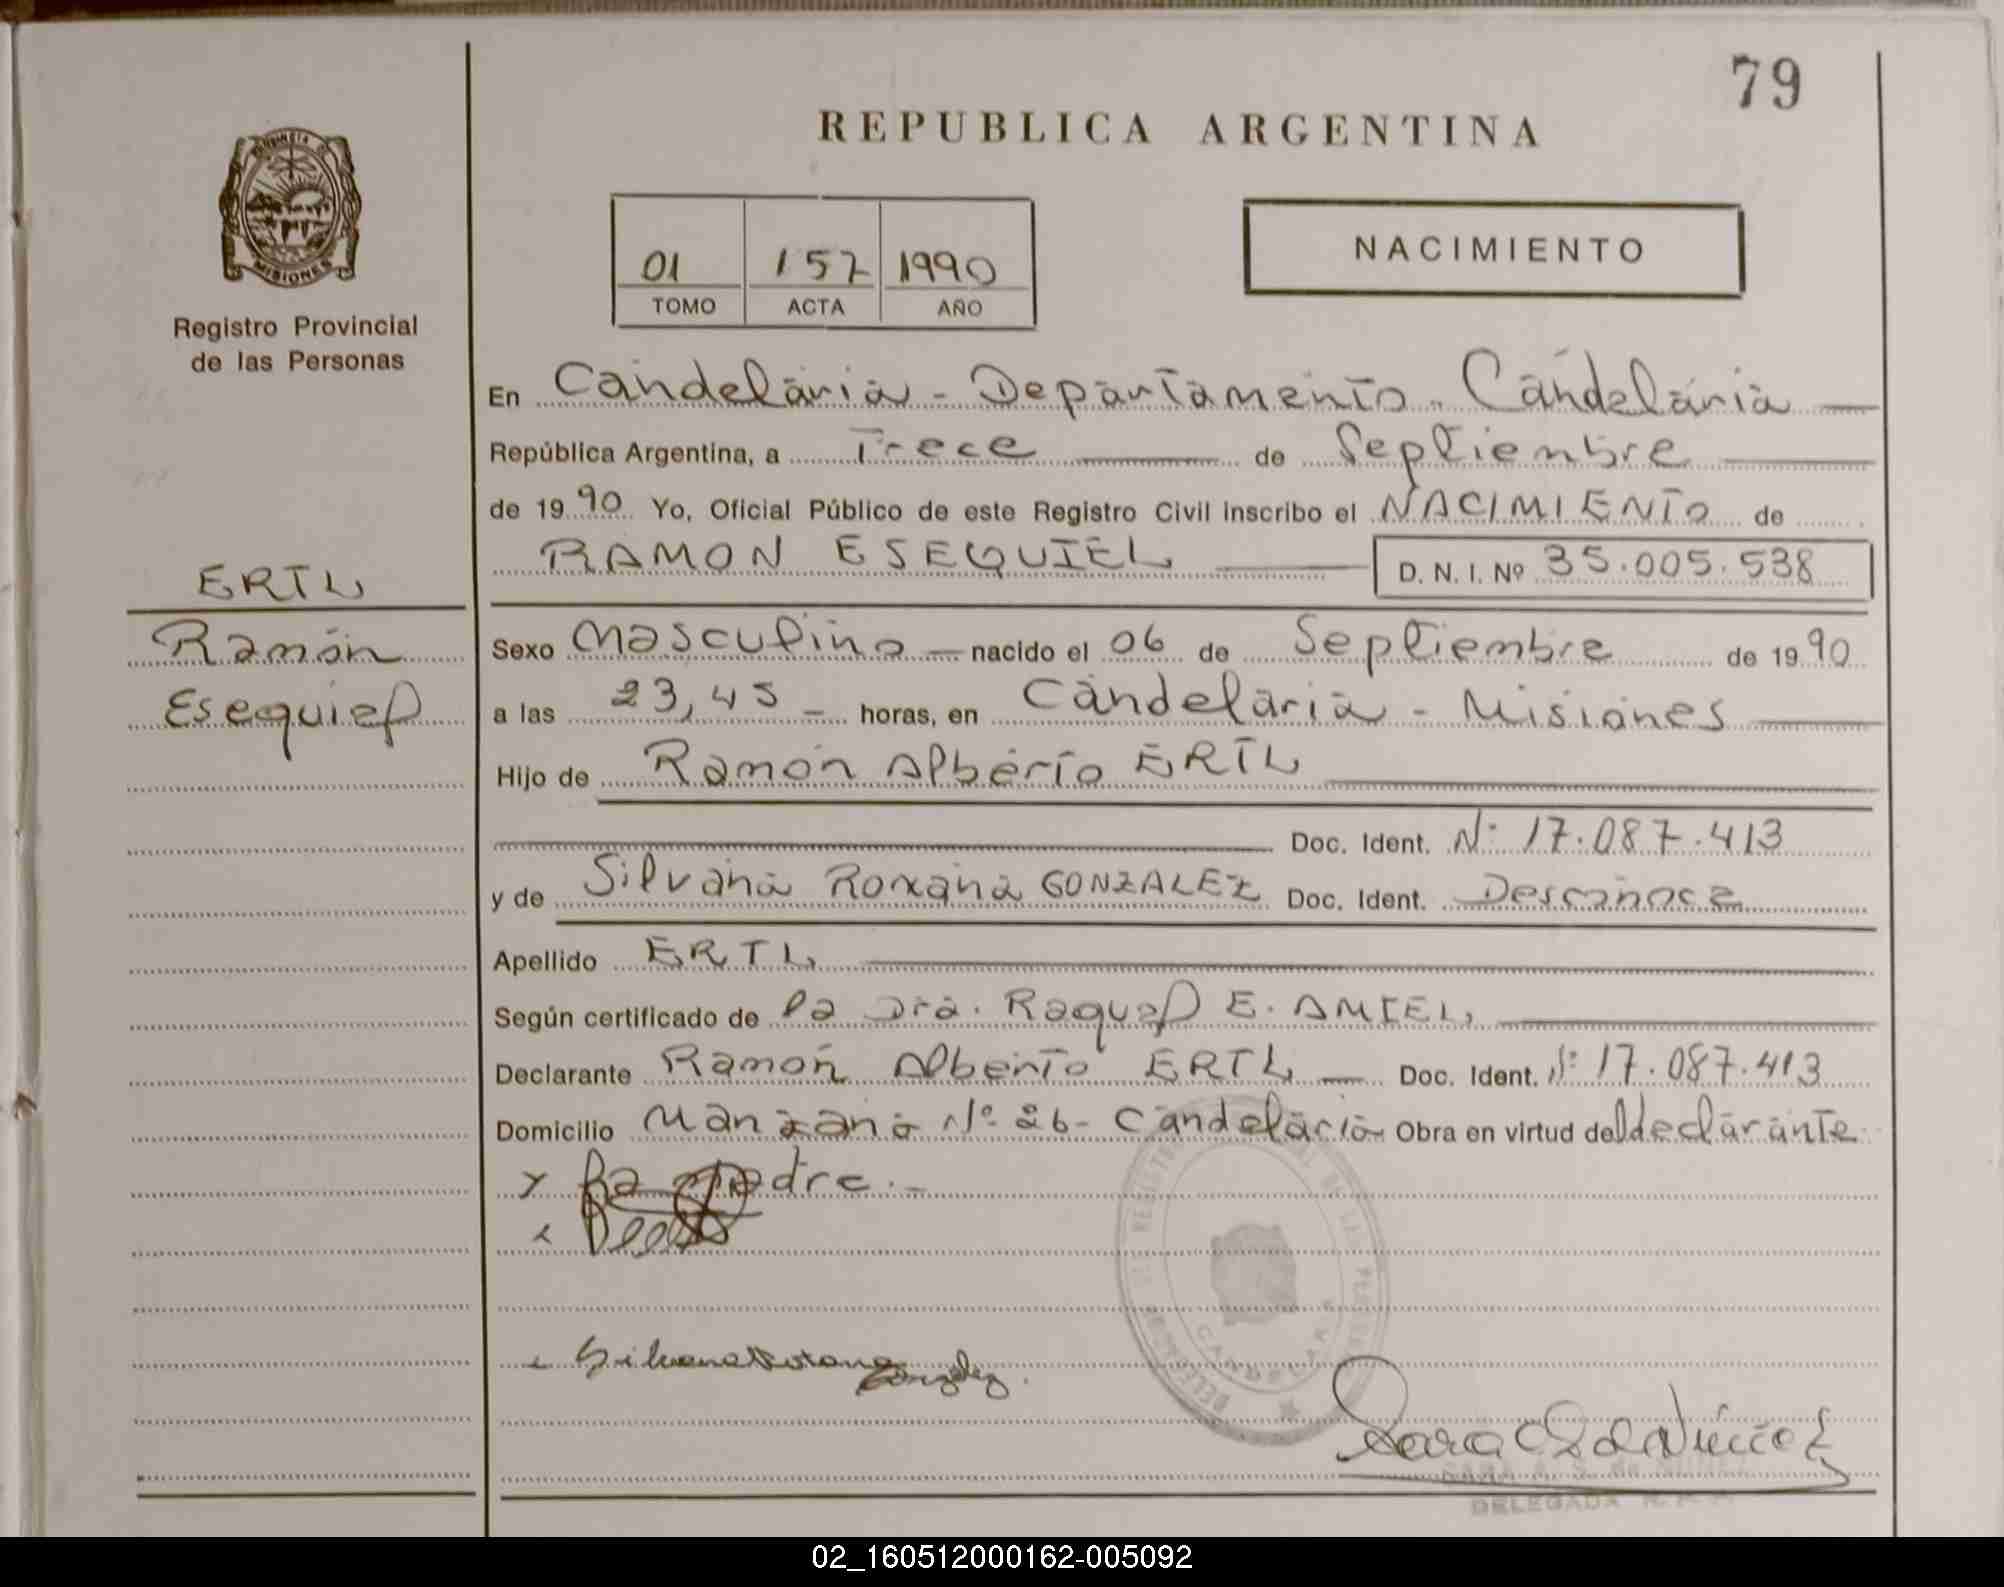 79
REPUBLICA ARGENTINA
PROVINCIA DE
MISIONES
Registro Provincial
de las Personas
01 157 1990
TOMO ACTA AÑO
NACIMIENTO
En Candelaria - Departamento Candelaria
República Argentina, a Trece de Septiembre
de 1990 Yo, Oficial Público de este Registro Civil inscribo el NACIMIENTO de
RAMON ESEQUIEL D. N. I. Nº 35.005.538
ERTL
Ramón
Esequiel
Sexo Masculino nacido el 06 de Septiembre de 1990
a las 23,45 - horas, en Candelaria - Misiones
Hijo de Ramón Alberto ERTL
Doc. Ident. Nº 17.087.413
y de Silvana Roxana GONZALEZ Doc. Ident. Desconoce
Apellido ERTL
Según certificado de la Dra. Raquel E. AMIEL
Declarante Ramón Alberto ERTL Doc. Ident. Nº 17.087.413
Domicilio Manzana Nº 26- Candelaria Obra en virtud del declarante
y la madre.-
Silvana Roxana
Gonzalez.
CANDELARIA
DELEGADA
02_160512000162-005092